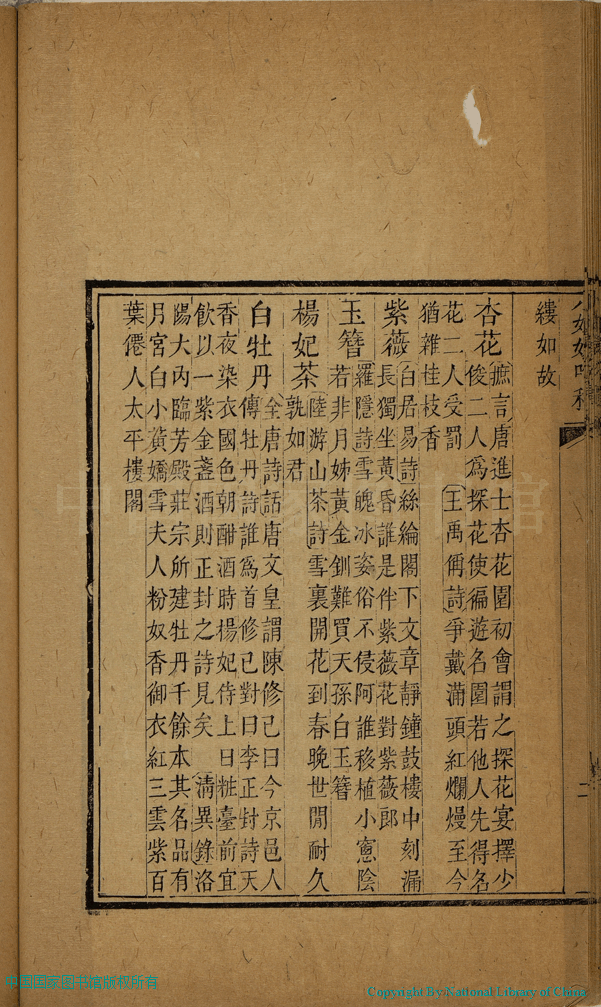 二
縷如故
杏花摭言唐進士杏花園初會謂之探花宴擇少
俊二人爲探花使徧遊名園若他人先得名
花二人受罰 王禹偁詩爭戴滿頭紅爛熳至今
猶雜桂枝香
紫薇白居易詩絲綸閣下文章靜鐘鼓樓中刻漏
長獨坐黃昏誰是伴紫薇花對紫薇郎
玉簪羅隱詩雪魄冰姿俗不侵阿誰移植小窻陰
若非月姊黃金釧難買天孫白玉簪
楊妃茶陸游山茶詩雪裏開花到春晚世閒耐久
孰如君
白牡丹全唐詩話唐文皇謂陳修已曰今京邑人
傳牡丹詩誰爲首修已對曰李正封詩天
香夜染衣國色朝酣酒時楊妃侍上曰粧臺前宜
飲以一紫金盞酒則正封之詩見矣 清異錄洛
陽大內臨芳殿莊宗所建牡丹千餘本其名品有
月宮白小黃嬌雪夫人粉奴香御衣紅三雲紫百
葉僊人太平樓閣
中国国家图书馆版权所有
Copyright By National Library of China